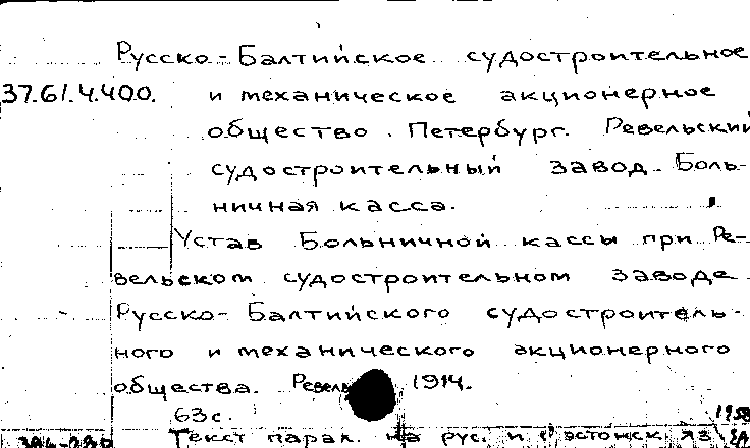 Русско-Балтийское судостроительное
37.61.4.400. и механическое акционерное
общество. Петербург. Ревельский
судостроительный завод. Боль-
ничная касса.
Устав Больничной кассы при Ре-
вельском судостроительном заводе
Русско-Балтийского судостроитель-
ного и механического акционерного
общества. Ревель 1914.
63 с.
Текст парал. на рус. и эстонск. яз.